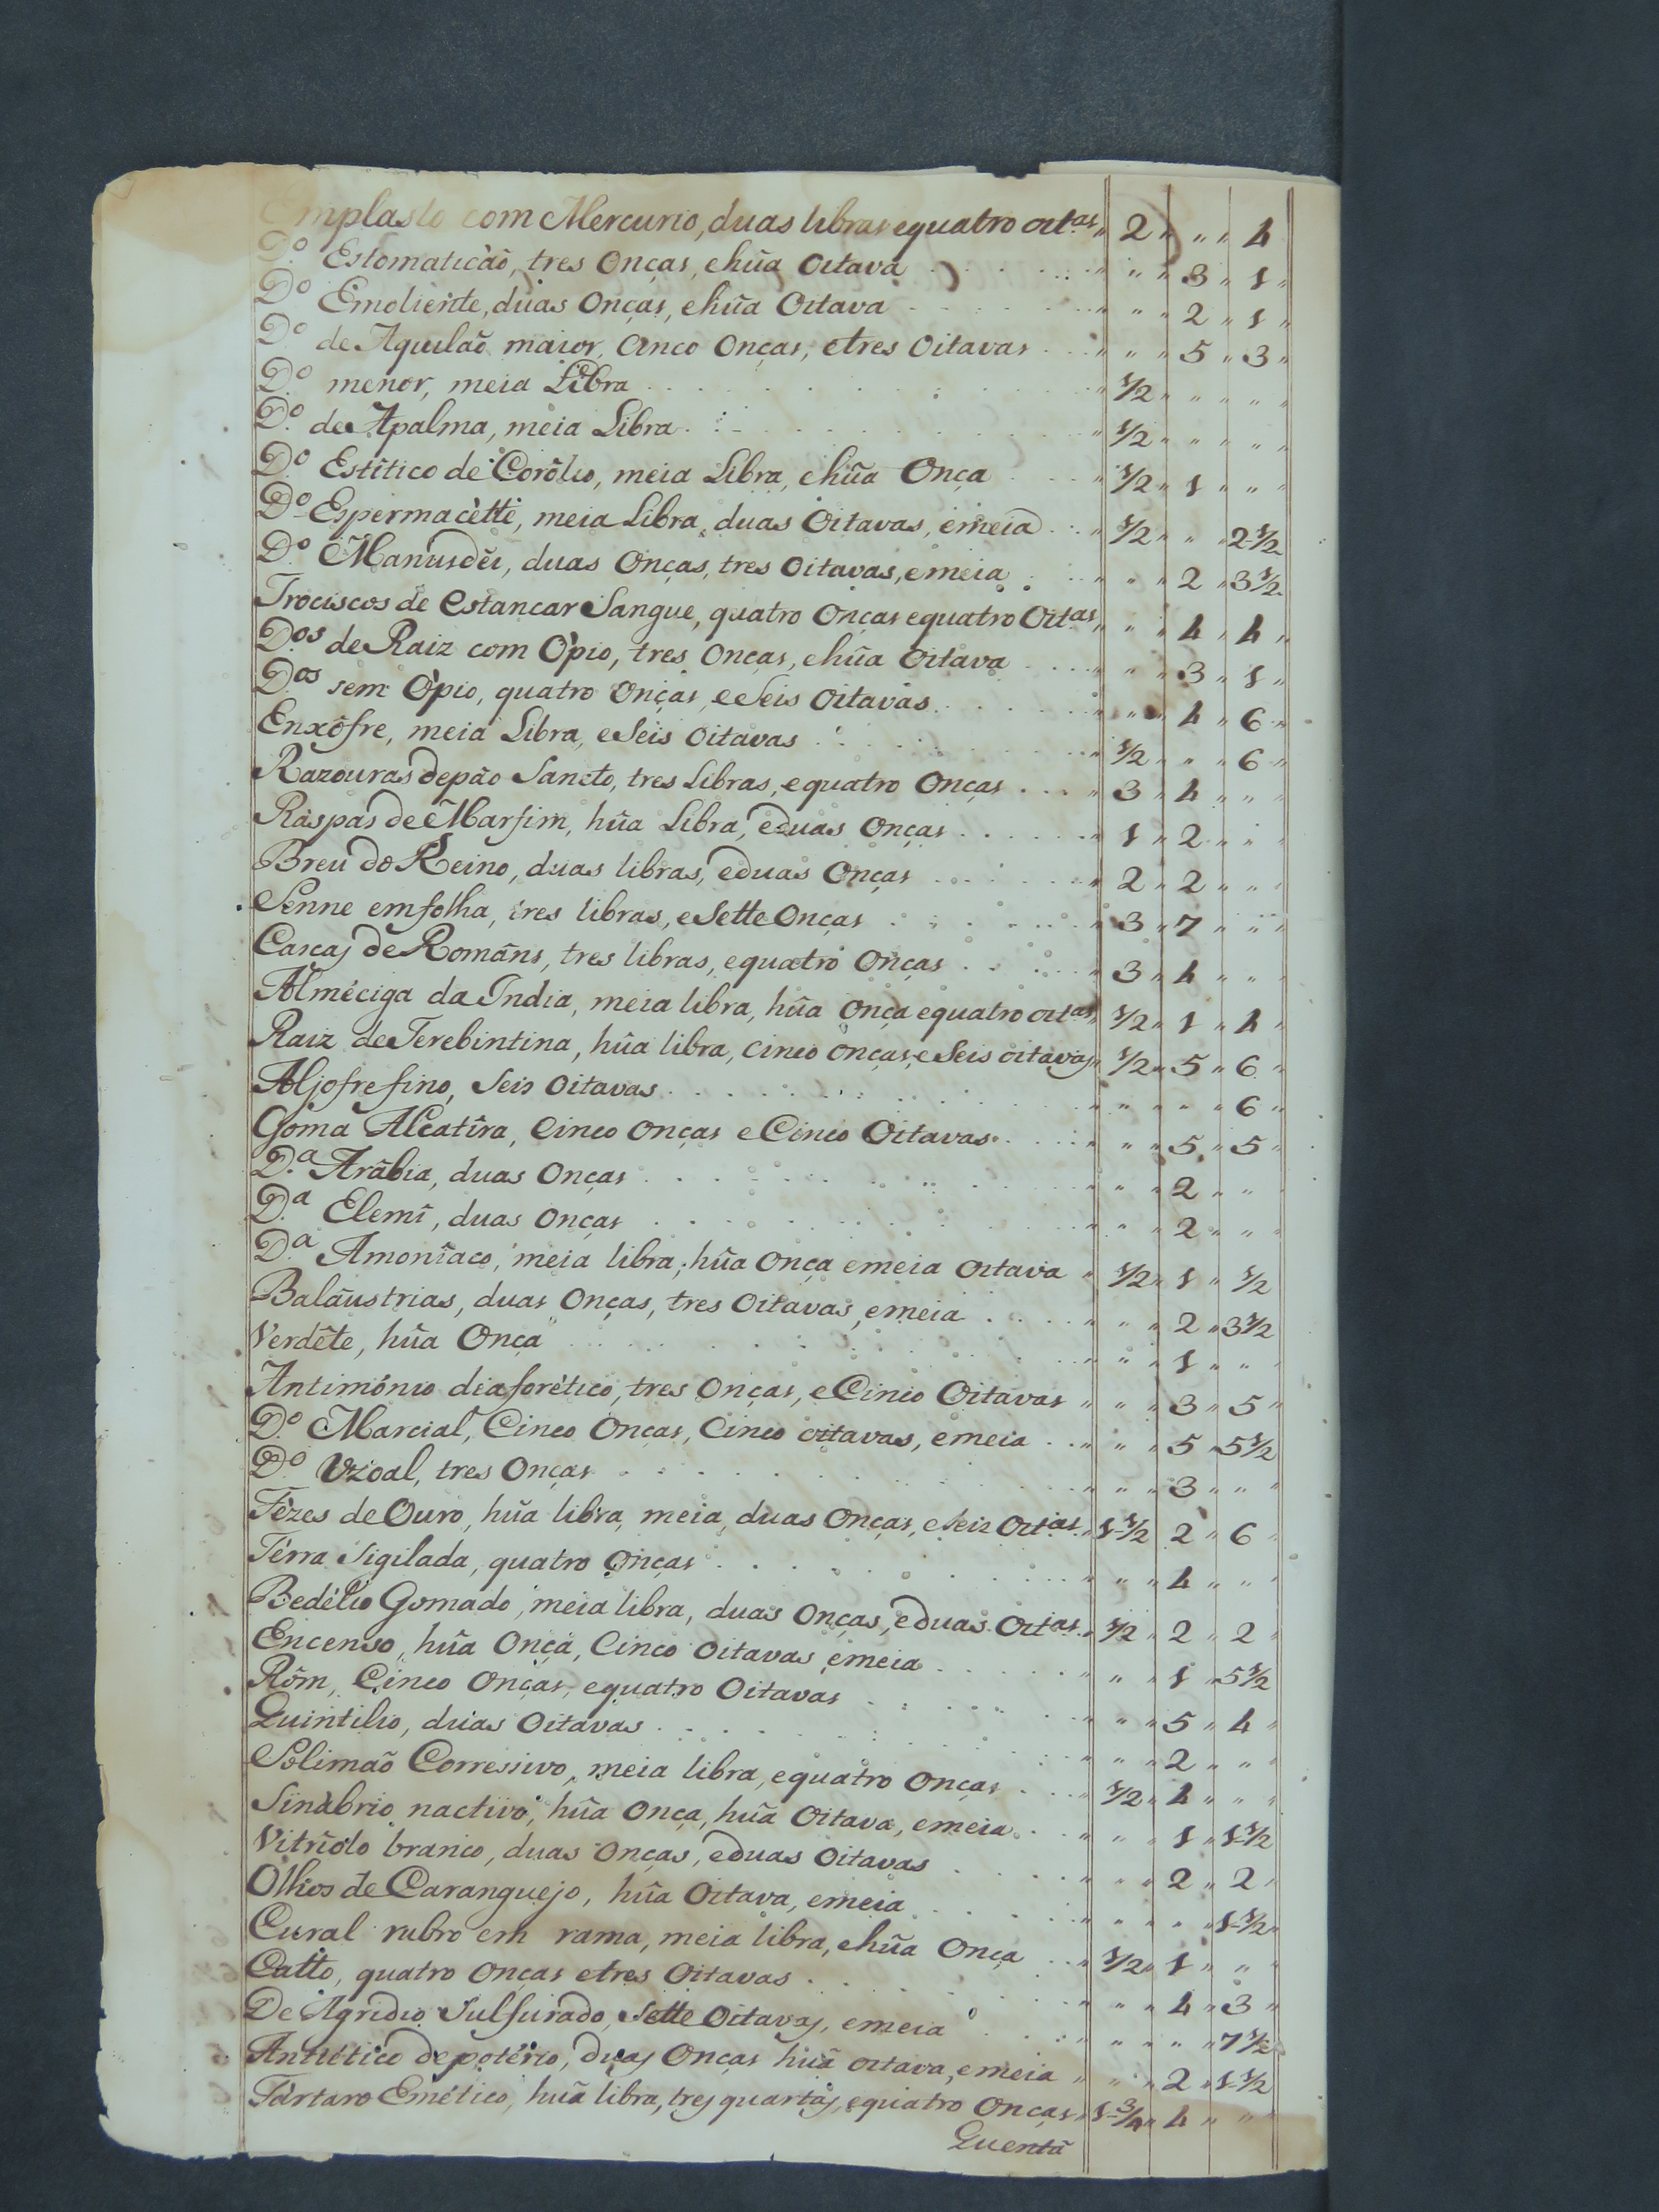 Emplasto com Mercurio, duas libras equatro oit.as " 2 " " " 4
D.o Estomaticão, tres Onças, ehũa Oitava " " " 3 " 1 "
D.o Emoliente, duas Onças, ehũa Oitava " " " 2 " 1 "
D.o de Aquilão maior, cinco Onças, etres Oitavas " " " 5 " 3 "
D.o menor, meia Libra " 1/2 " " " " "
D.o de Apalma, meia Libra " 1/2 " " " " "
D.o Estitico de Corólio, meia Libra, ehũa Onça " 1/2 " 1 " " "
D.o Espermacètti, meia Libra, duas Oitavas, emeia " 1/2 " " " 2 1/2
D.o Manusdei, duas Onças, tres Oitavas, emeia " " " 2 " 3 1/2
Trociscos de estancar Sangue, quatro Onças equatro Oit.as " " " 4 " 4 "
D.os de Raiz com Òpio, tres Onças, ehũa Oitava " " " 3 " 1 "
D.os sem Òpio, quatro Onças, eSeis Oitavas " " " 4 " 6 "
Enxôfre, meia Libra, eSeis Oitavas " 1/2 " " " 6 "
Razouras depáo Sancto, tres Libras, equatro Onças " 3 " 4 " " "
Ráspas de Marfim, hũa Libra, eduas Onças " 1 " 2 " " "
Breu do Reino, duas libras, eduas Onças " 2 " 2 " " "
Senne emfolha, tres libras, eSette Onças " 3 " 7 " " "
Cascas de Romãns, tres libras, equatro Onças " 3 " 4 " " "
Almèciga da India, meia libra, hũa Onça equatro oit.as " 1/2 " 1 " 4 "
Raiz de Terebintina, hũa libra, cinco onças, eSeis oitavas " 1/2 " 5 " 6 "
Aljofre fino, Seis Oitavas " " " " " 6 "
Goma Alcatîra, Cinco Onças e Cinco Oitavas " " " 5 " 5 "
D.a Aràbia, duas Onças " " " 2 " " "
D.a Elemî, duas Onças " " " 2 " " "
D.a Amonîaco, meia libra, hũa Onça emeia Oitava " 1/2 " 1 " 1/2
Balaùstrias, duas Onças, tres Oitavas, emeia " " " 2 " 3 1/2
Verdête, hũa Onça " " " 1 " " "
Antimônio diaforético, tres Onças, e Cinco Oitavas " " " 3 " 5 "
D.o Marcial, Cinco Onças, Cinco oitavas, emeia " " " 5 " 5 1/2
D.o Uzoal, tres Onças " " " 3 " " "
Fézes de Ouro, hũa libra, meia, duas Onças, eSeis Oitas " 1 1/2 2 " 6 "
Térra Sigilada, quatro Onças " " " 4 " " "
Bedélio Gomado, meia libra, duas Onças, eduas Oit.as " 1/2 " 2 " 2 "
Encenso, hũa Onça, Cinco Oitavas emeia " " " 1 " 5 1/2
Rôm, Cinco Onças, equatro Oitavas " " " 5 " 4 "
Quintilio, duas Oitavas " " " 2 " " "
Solimaõ Corressivo, meia libra, equatro Onças " 1/2 " 4 " " "
Sinàbrio nactivo, hũa Onça, hũa Oitava, emeia " " " 1 " 1 1/2
Vitríolo branco, duas Onças, eduas Oitavas " " " 2 " 2 "
Olhos de Caranguejo, hũa Oitava, emeia " " " " " 1 1/2 "
Cural rubro em rama, meia libra, ehũa Onça " 1/2 " 1 " " "
Catto, quatro Onças etres Oitavas " " " 4 " 3 "
De Agridio Sulfurado, Sette Oitavas, emeia " " " " " 7 1/2
Antiético de potério, duas Onças hũa oitava, emeia " " " 2 " 1 1/2
Tártaro Emético, hũa libra, tres quartas, equatro Onças " 1 3/4 " 4 " " "
Quentã